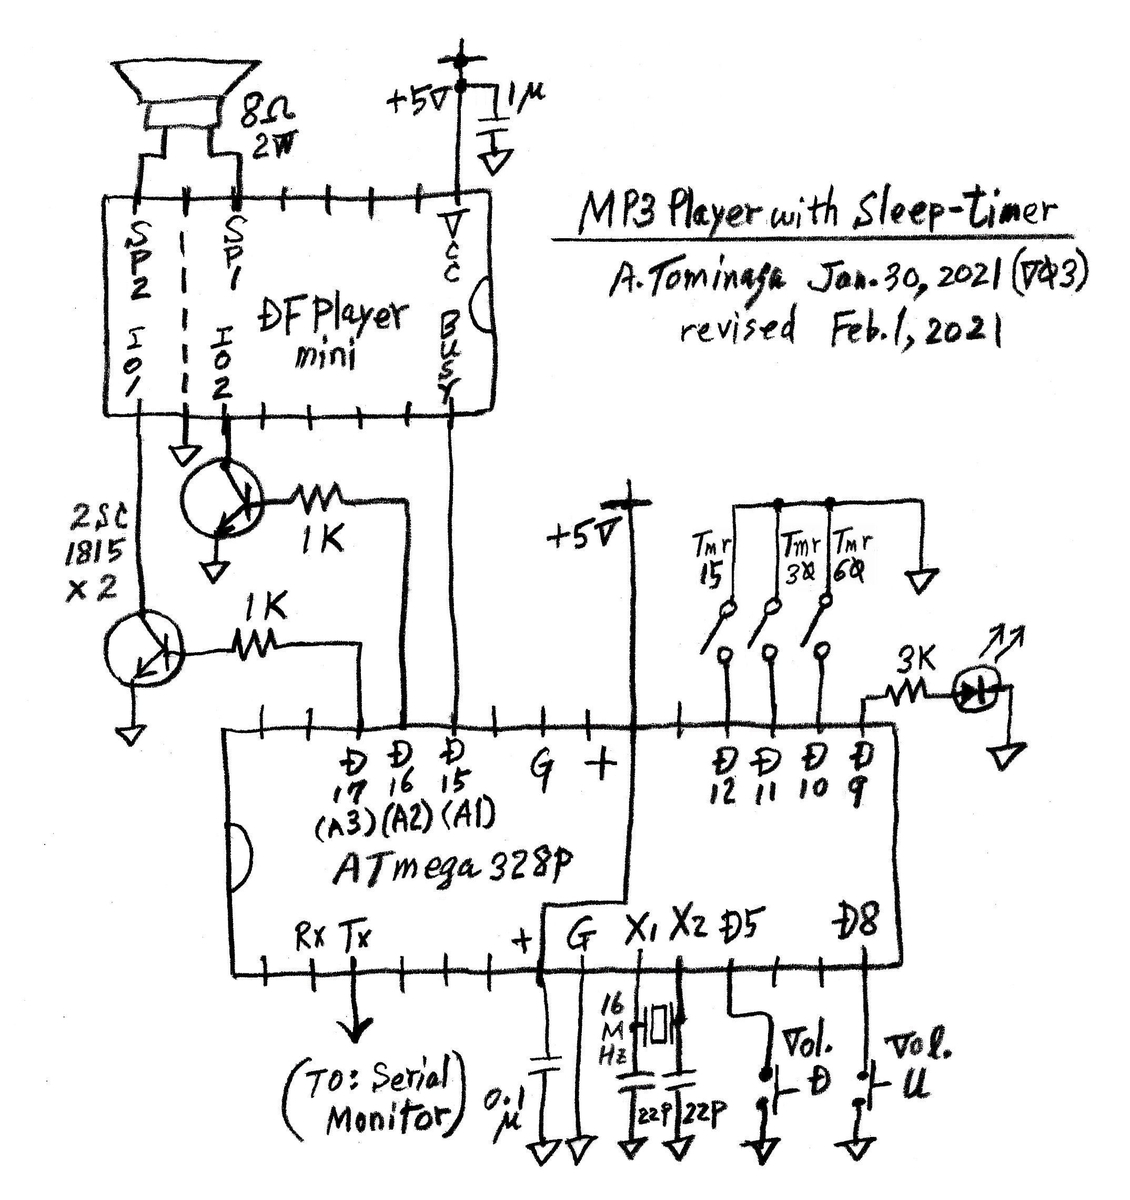 8Ω
2W
+5V
1μ
MP3 Player with Sleep-timer
A.Tominaga Jan.30, 2021 (V03)
revised Feb.1, 2021
SP2
SP1
Vcc
DF Player
mini
IO1
IO2
BUSY
2SC
1815
x 2
1K
1K
+5V
Tmr
15
Tmr
30
Tmr
60
3K
D
17
(A3)
D
16
(A2)
D
15
(A1)
G
+
D
12
D
11
D
10
D
9
ATmega 328P
Rx Tx
+
G
X1
X2
D5
D8
(TO: Serial
Monitor)
0.1
μ
16
M
Hz
22P
22P
Vol.
D
Vol.
U